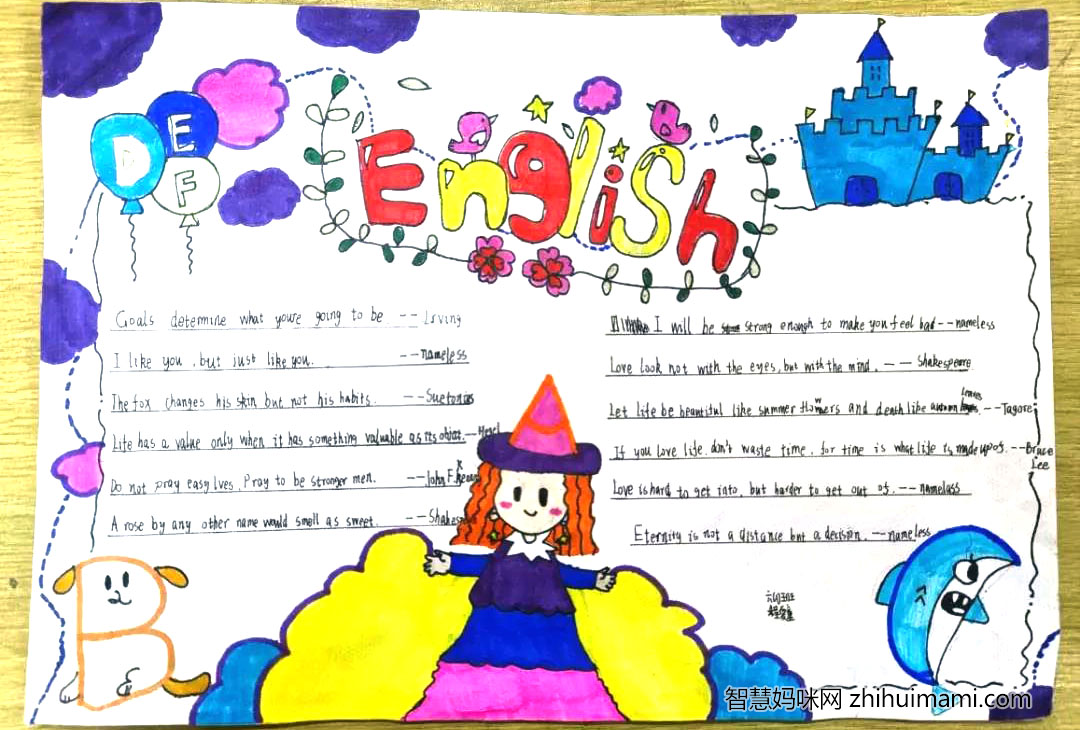 D E F
English
Goals determine what you're going to be. -- Irving
I like you, but just like you. -- nameless
The fox changes his skin but not his habits. -- Suetonius
Life has a value only when it has something valuable as its object. -- Hegel
Do not pray easy lves. Pray to be stronger men. -- John F. Kenn
A rose by any other name would smell as sweet. -- Shakes
I will be strong enough to make you feel bad -- nameless
Love look not with the eyes, but with the mind. -- Shakespeare
Let life be beautiful like summer flowers and death like autumn leaves. -- Tagore
If you love life, don't waste time, for time is what life is made up of. -- Bruce Lee
Love is hard to get into, but harder to get out of. -- nameless
Eternity is not a distance but a decision. -- nameless
B
智慧妈咪网 zhihuimami.com